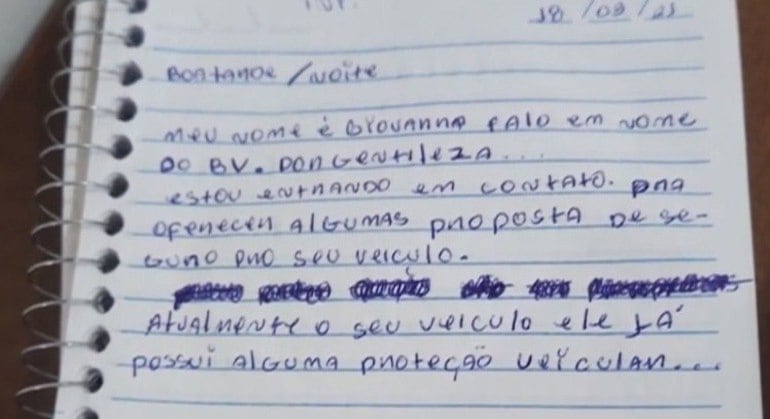 18/08/21
BOATARDE/NOITE
MEU NOME É GIOVANNA FALO EM NOME
DO BV. PORGENTILEZA...
ESTOU ENTRANDO EM CONTATO. PRA
OFERECER ALGUMAS PROPOSTA DE SE-
GURO PRO SEU VEICULO.
ATUALMENTE O SEU VEICULO ELE JÁ
POSSUI ALGUMA PROTEÇÃO VEICULAR...